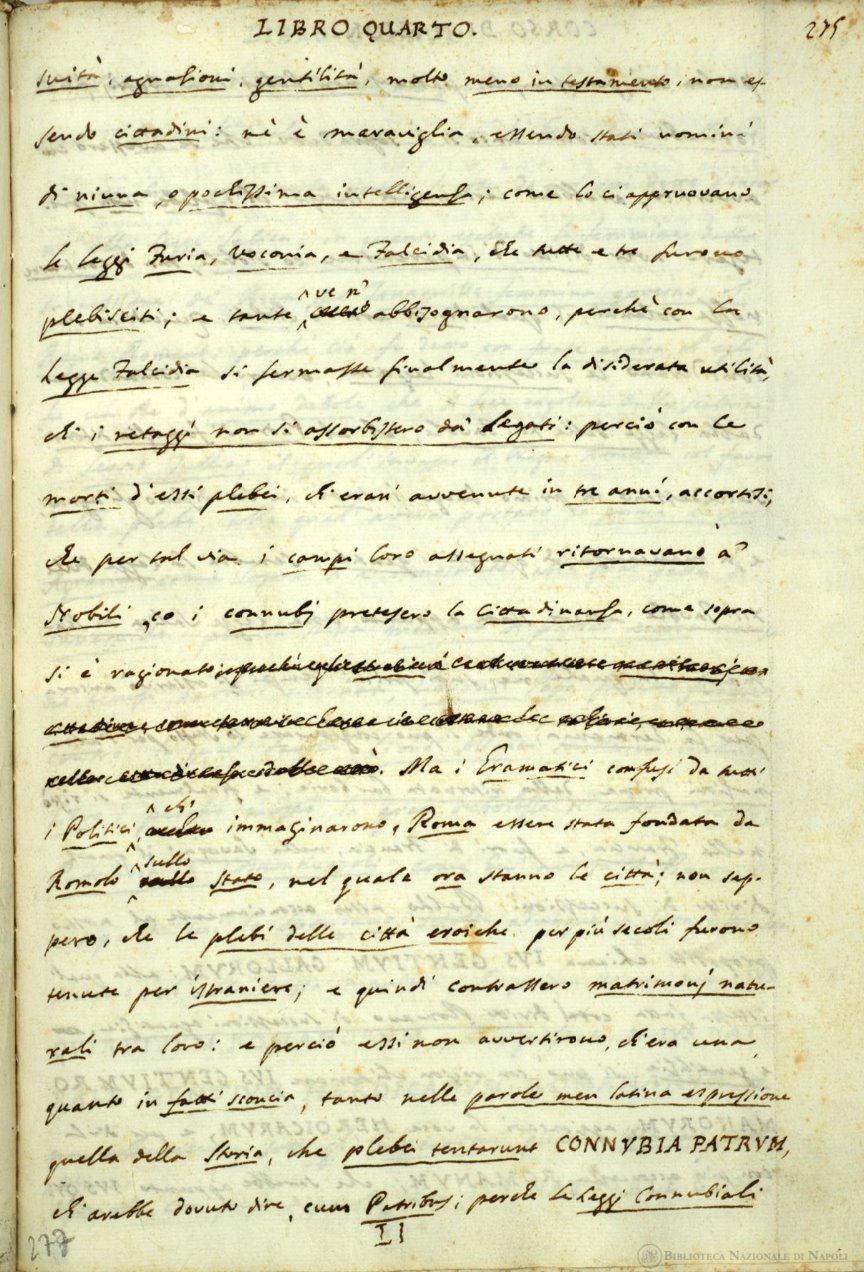 LIBRO QUARTO.
275
suità, agnasioni, gentilità, molto meno in testamento, non es-
sendo cittadini: nè è maraviglia, essendo stati uomini
di niuna, o pochissima intelligensa; come lo ci appruovano
le leggi Furia, Voconia, e Falcidia, che tutte e tre furono
ve n'
plebisciti; e tante abbisognarono, perchè con la
legge Falcidia si fermasse finalmente la disiderata utilità,
ch' i retaggi non si assorbissero da' legati: perciò con le
morti d'essi plebei, ch'eran' avvenute in tre anni, accortisi,
che per tal via i campi loro assegnati ritornavano a'
Nobili, co i connubj pretesero la cittadinansa, come sopra
si è ragionato
. Ma i Gramatici confusi da tutti
ch'
i Politici, immaginarono, Roma essere stata fondata da
sullo
Romolo stato, nel quale ora stanno le città; non sep-
pero, che le plebi delle città eroiche per più secoli furono
tenute per istraniere; e quindi contrassero matrimonj natu-
rali tra loro: e perciò essi non avvertirono, ch'era una
quanto in fatti sconcia, tanto nelle parole men latina espressione
quella della Storia, che plebei tentarunt CONNVBIA PATRVM,
ch'arebbe dovuto dire, cum Patribus; perchè le leggi Connubiali
II
277
BIBLIOTECA NAZIONALE DI NAPOLI